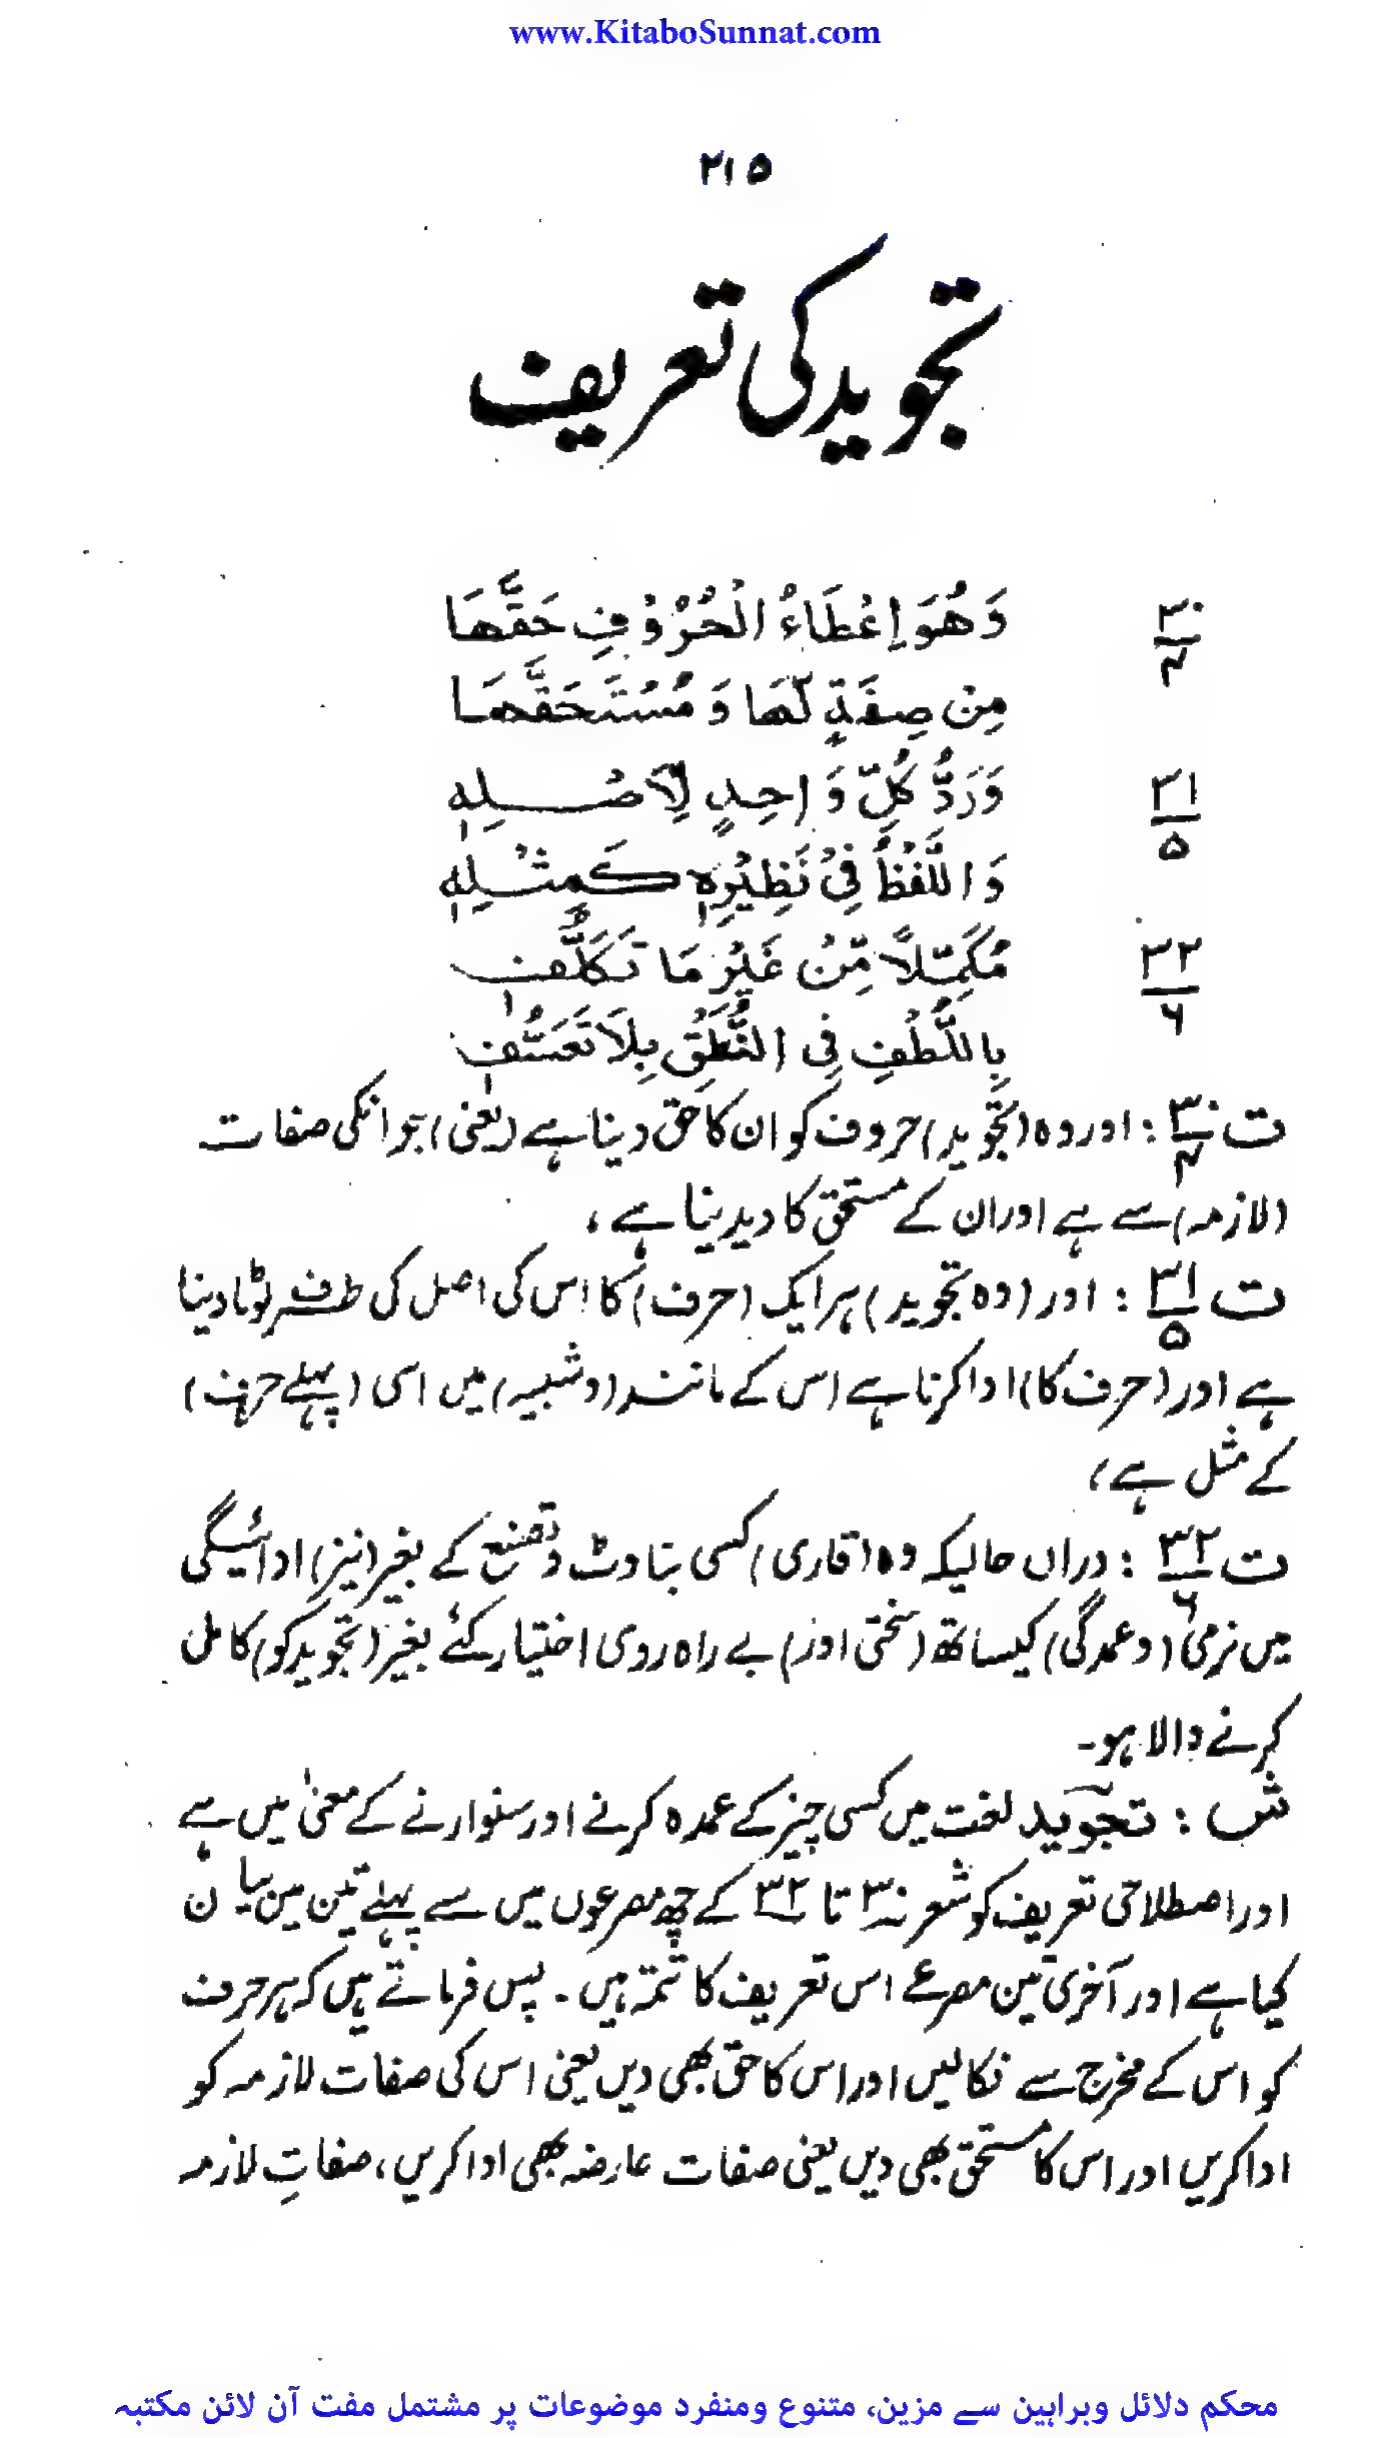 www.KitaboSunnat.com
۲۱۵
تجوید کی تعریف
۳۰/۴ وَهُوَ اِعْطَاءُ الْحُرُوْفِ حَقَّهَا
مِنْ صِفَةٍ لَّهَا وَ مُسْتَحَقَّهَا
۳۱/۵ وَرَدُّ كُلِّ وَاحِدٍ لِّاَصْلِهٖ
وَاللَّفْظُ فِيْ نَظِيْرِهٖ كَمِثْلِهٖ
۳۲/۶ مُكَمِّلًا مِّنْ غَيْرِ مَا تَكَلُّفٖ
بِاللُّطْفِ فِي النُّطْقِ بِلَا تَعَسُّفٖ
ت ۳۰/۴ : اور وہ (تجوید) حروف کو ان کا حق دینا ہے (یعنی) جو انکی صفات
(لازمہ) سے ہے اور ان کے مستحق کا دیدینا ہے،
ت ۳۱/۵ : اور (وہ تجوید) ہر ایک (حرف) کا اس کی اصل کی طرف لوٹا دینا
ہے اور (حرف کا) ادا کرنا ہے اس کے مانند (و شبیہ) میں اسی (پہلے حرف)
کے مثل ہے،
ت ۳۲/۶ : دراں حالیکہ وہ (قاری) کسی بناوٹ و تصنع کے بغیر (نیز) ادائیگی
میں نرمی (و عمدگی) کیساتھ (سختی اور) بے راہ روی اختیار کئے بغیر (تجوید کو) کامل
کرنے والا ہو۔
ش : تجوید لغت میں کسی چیز کے عمدہ کرنے اور سنوارنے کے معنیٰ میں ہے
اور اصطلاحی تعریف کو شعر ۳۰ تا ۳۲ کے چھ مصرعوں میں سے پہلے تین میں بیان
کیا ہے اور آخری تین مصرعے اس تعریف کا تتمہ ہیں۔ پس فرماتے ہیں کہ ہر حرف
کو اس کے مخرج سے نکالیں اور اس کا حق بھی دیں یعنی اس کی صفات لازمہ کو
ادا کریں اور اس کا مستحق بھی دیں یعنی صفات عارضہ بھی ادا کریں، صفاتِ لازمہ
محکم دلائل وبراہین سے مزین، متنوع ومنفرد موضوعات پر مشتمل مفت آن لائن مکتبہ